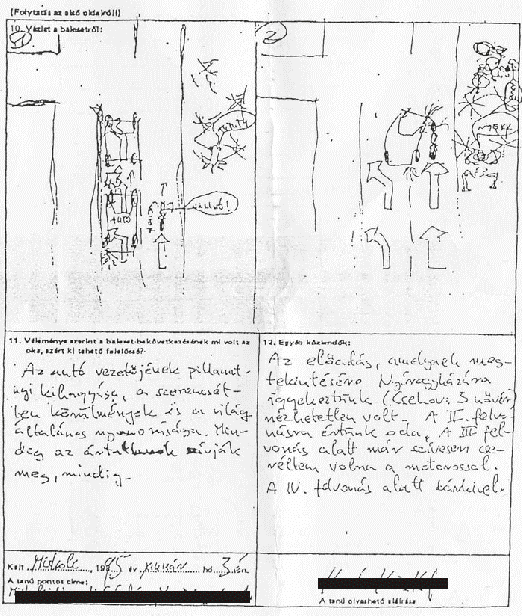 (Folytatás az első oldalról!)
10. Vázlat a balesetről:
1
2
AUTÓ
11. Véleménye szerint a baleset bekövetkezésének mi volt az
oka, ezért ki tehető felelőssé?
Az autó vezetőjének pillanat-
nyi kihagyása, a szerencsét-
len körülmények és a világ
általános nyomorúsága. Min-
dég az ártatlanok szívják
meg, mindig.
12. Egyéb közlendők:
Az előadás, amelynek meg-
tekintésére Nyíregyházára
igyekeztünk (Csehov: 3 nővér)
nézhetetlen volt. A II. felvo-
násra értünk oda. A III. fel-
vonás alatt már szívesen cse-
réltem volna a motorossal.
A IV. felvonás alatt bárkivel.
Kelt 1995 év hó 3 -án.
A tanú pontos címe:
A tanú olvasható aláírása